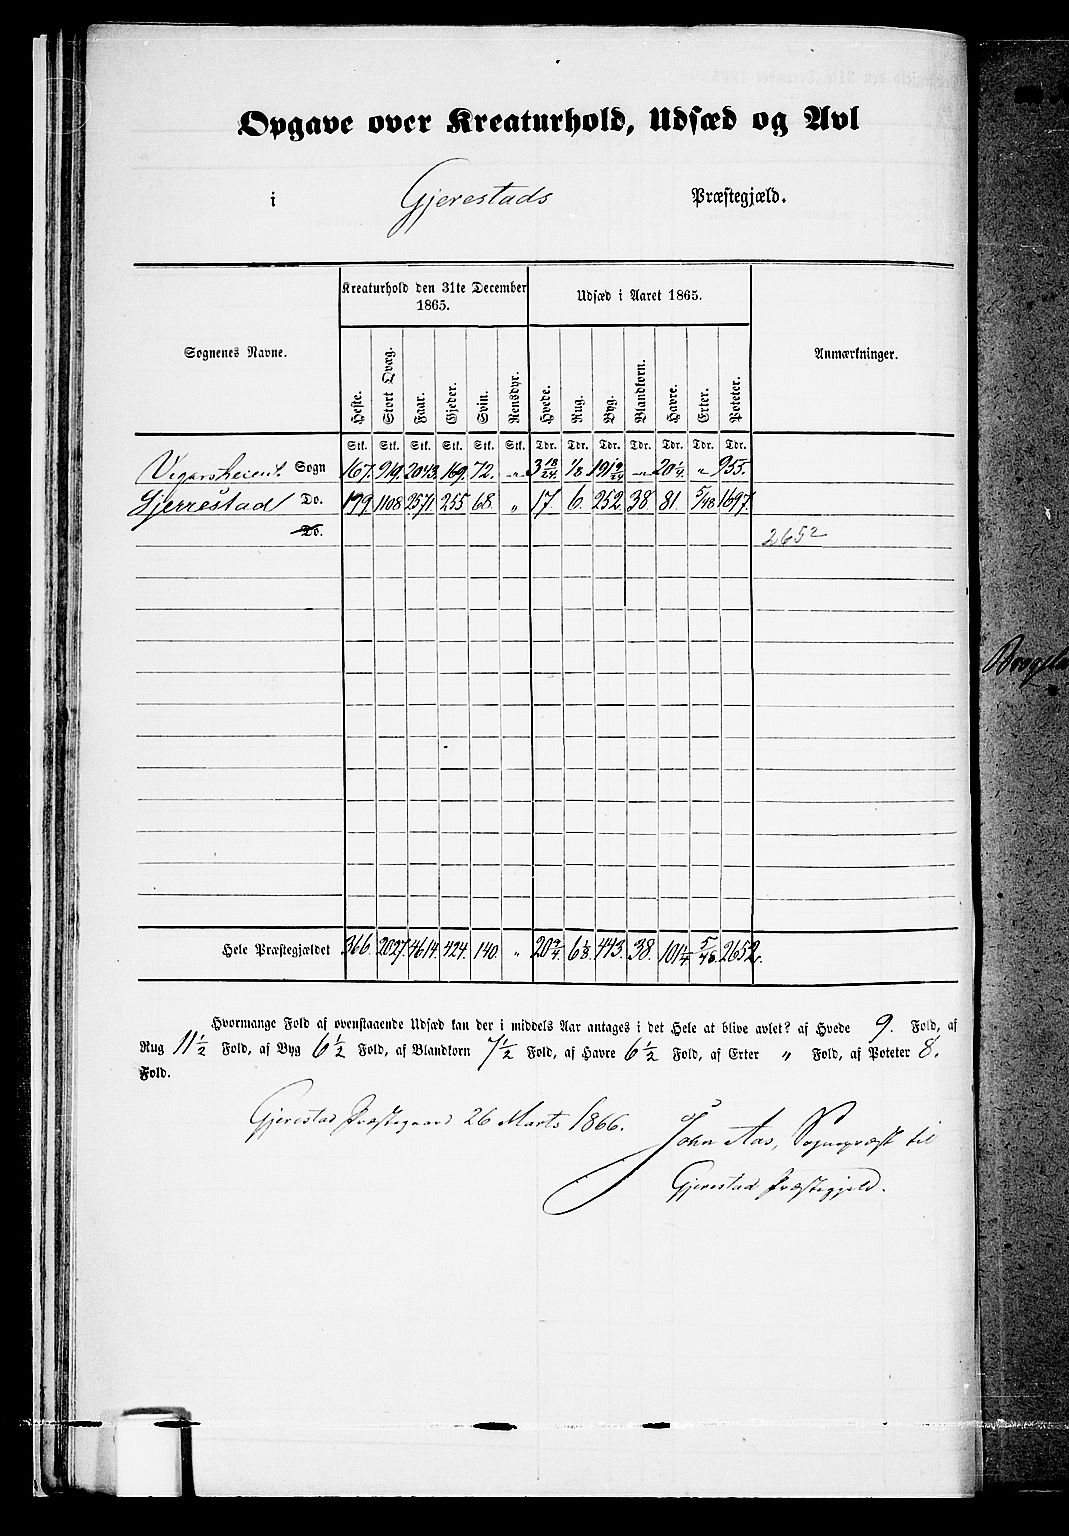 Opgave over Kreaturhold, Udsæd og Avl
i Gjerestads Præstegjæld.
Kreaturhold den 31te December 1865. Udsæd i Aaret 1865.
Sognenes Navne. Heste. Stort Qvæg. Faar. Gjeder. Svin. Rensdyr. Hvede. Rug. Byg. Blandkorn. Havre. Erter. Poteter. Anmærkninger.
Stk. Stk. Stk. Stk. Stk. Stk. Tdr. Tdr. Tdr. Tdr. Tdr. Tdr. Tdr.
Sogn 167. 919. 2043. 169. 72. „ 3 18/24 1/8 191 9/24 „ 20 1/4. „ 955.
Gjerrestad Do. 199. 1108 2571. 255 68. „ 17. 6. 252. 38. 81. 5/48. 1697.
Do. 2652
Hele Præstegjældet 366. 2027. 4614. 424. 140. „ 20 3/4 6 1/8. 443. 38. 101 1/4 5/48. 2652.
Hvormange Fold af ovenstaaende Udsæd kan der i middels Aar antages i det Hele at blive avlet? af Hvede 9. Fold, af
Rug 11 1/2 Fold, af Byg 6 1/2 Fold, af Blandkorn 7 1/2 Fold, af Havre 6 1/2 Fold, af Erter „ Fold, af Poteter 8.
Fold.
Gjerestad Præstegaard 26 Marts 1866.
John Aas, Sognepræst til
Gjerestad Præstegjeld.